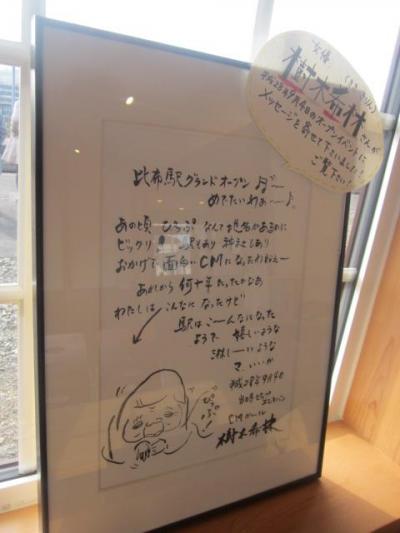 女優
(きききりん)
樹木希林さんが
平成28年9月4日のオープンイベントに
メッセージを寄せて下さいました!
ご覧下さい
比布駅グランドオープン
めでたいわぁー
あの頃 ぴっぷ なんて地名があるのに
ビックリ 駅もあり 神社もあり
おかげで 面白い CMになったわねぇー
あれから 何十年たったかなぁ
わたしは こんなになったけど
駅は こーんなになった
ようで 嬉しいような
淋しーいような
マ、いいか
平成28年9月4日
CMガール
樹木希林
ぴっぷっ!